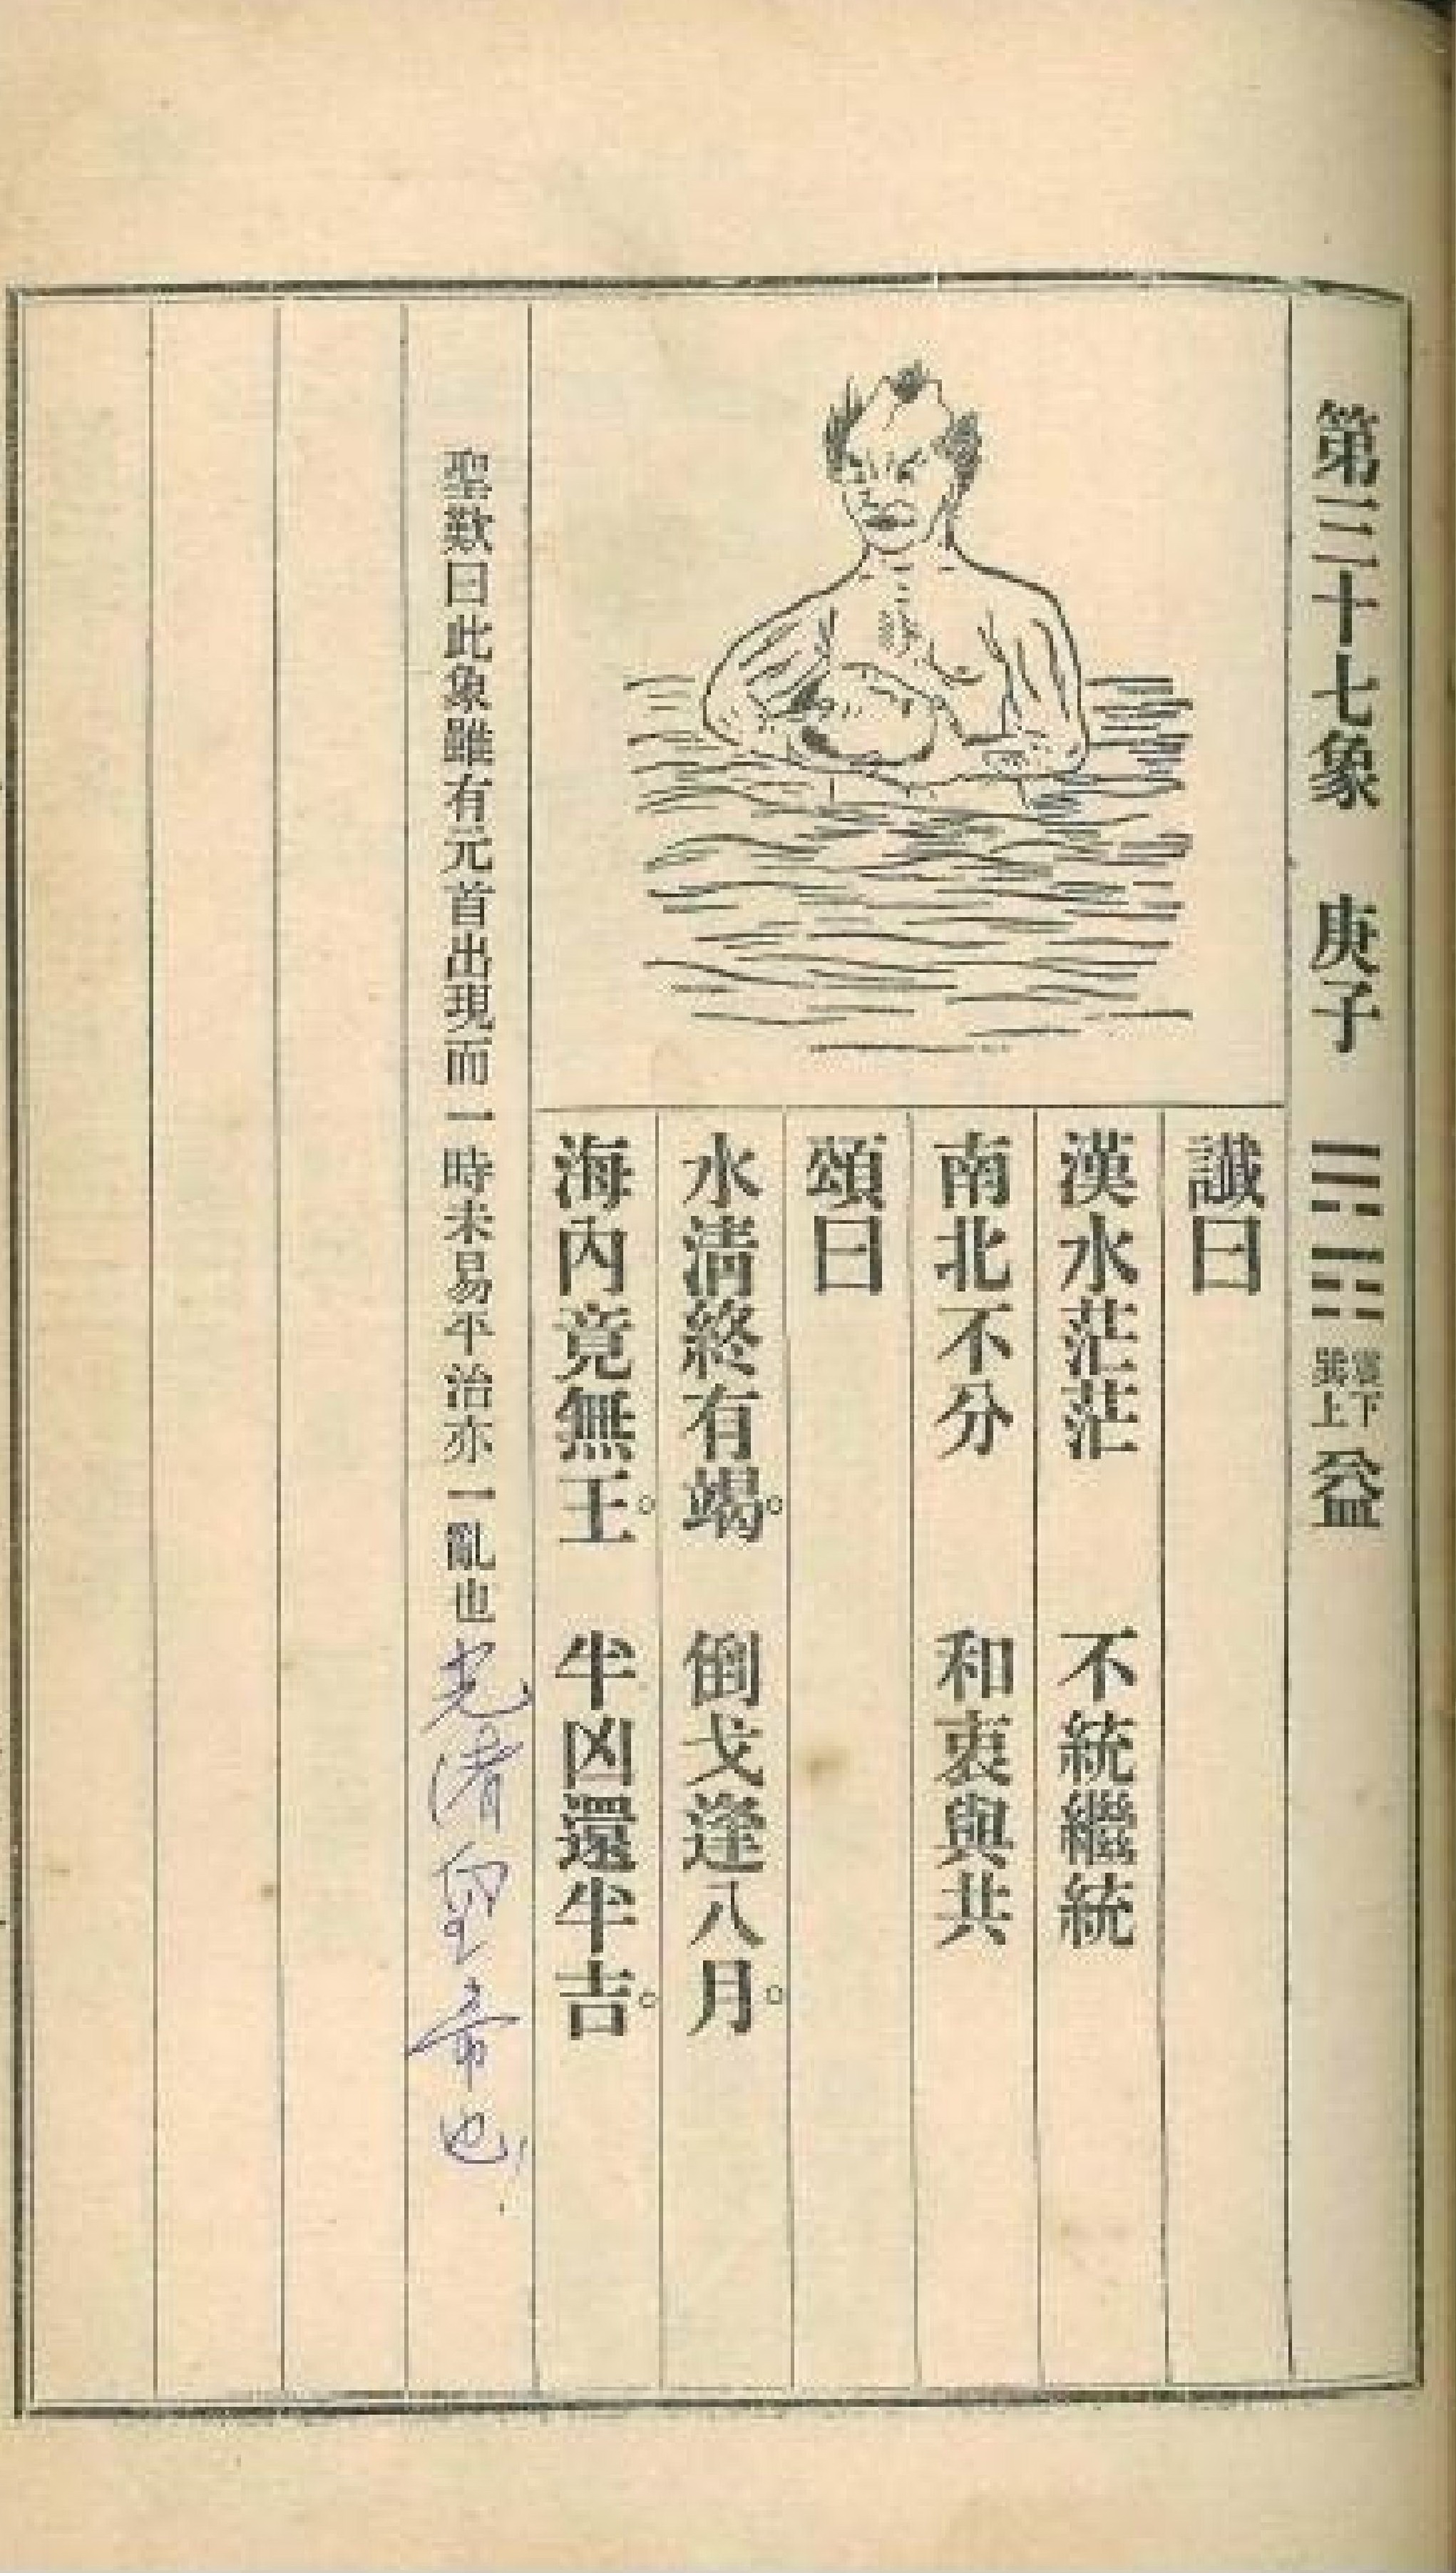 第三十七象 庚子 震下巽上 益
讖曰
漢水茫茫 不統繼統
南北不分 和衷與共
頌曰
水清終有竭。 倒戈逢八月。
海內竟無王。 半凶還半吉。
聖歎曰此象雖有元首出現而一時未易平治亦一亂也
光渚皇帝也